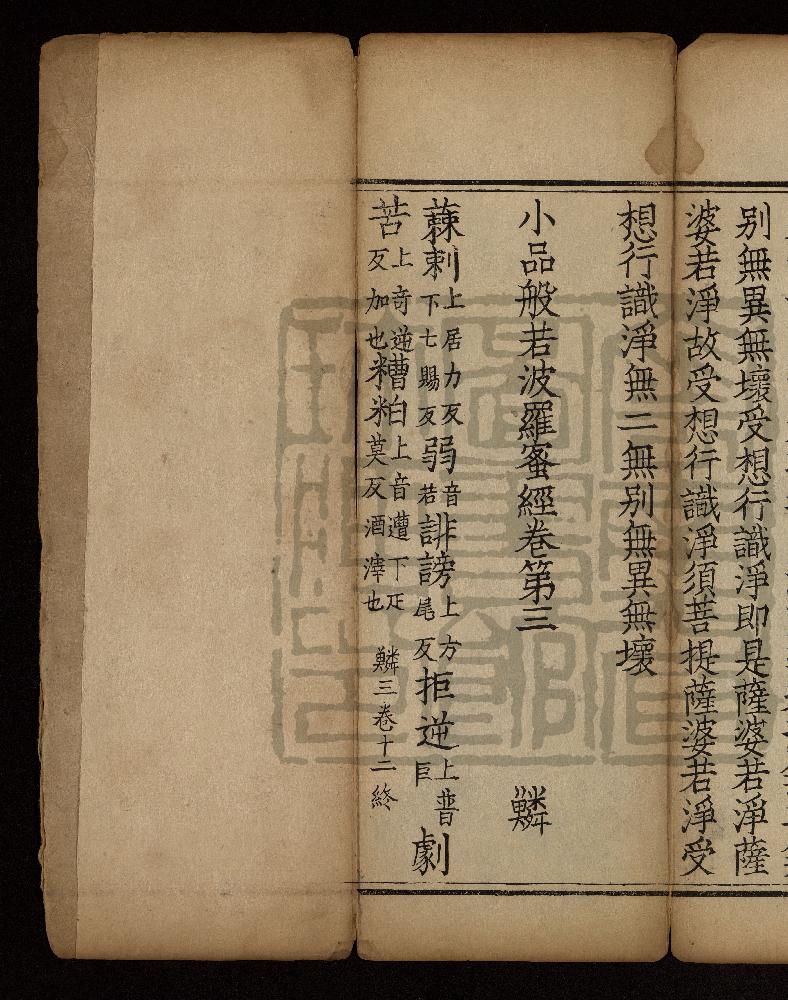 别無異無壞受想行識淨即是薩婆若淨薩
婆若淨故受想行識淨須菩提薩婆若淨受
想行識淨無二無别無異無壞
小品般若波羅蜜經卷第三 鱗
蕀刺上居力反下七賜反弱音若誹謗上方尾反拒逆上音巨劇
苦上奇逆反加也糟粕上音遭下疋莫反酒滓也 鱗三卷十二終